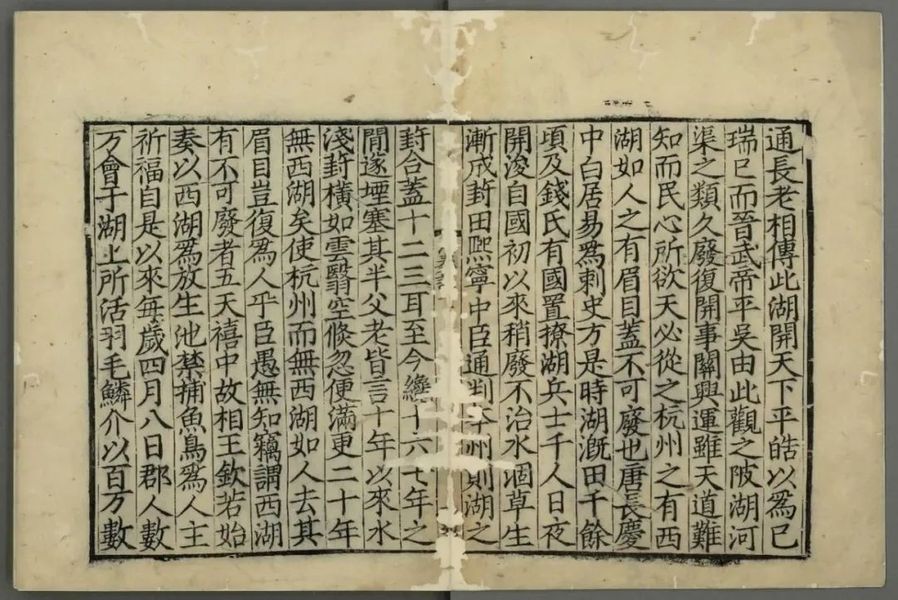 通長老相傳此湖開天下平皓以爲已
瑞已而晉武帝平吳由此觀之陂湖河
渠之類久廢復開事關興運雖天道難
知而民心所欲天必從之杭州之有西
湖如人之有眉目蓋不可廢也唐長慶
中白居易爲刺史方是時湖漑田千餘
頃及錢氏有國置撩湖兵士千人日夜
開浚自國初以來稍廢不治水涸草生
漸成葑田熈寧中臣通判本州則湖之
葑合蓋十二三耳至今纔十六七年之
閒遂堙塞其半父老皆言十年以來水
淺葑橫如雲翳空倐忽便滿更二十年
無西湖矣使杭州而無西湖如人去其
眉目豈復爲人乎臣愚無知竊謂西湖
有不可廢者五天禧中故相王欽若始
奏以西湖爲放生池禁捕魚鳥爲人主
祈福自是以來每歲四月八日郡人數
万會于湖上所活羽毛鱗介以百万數